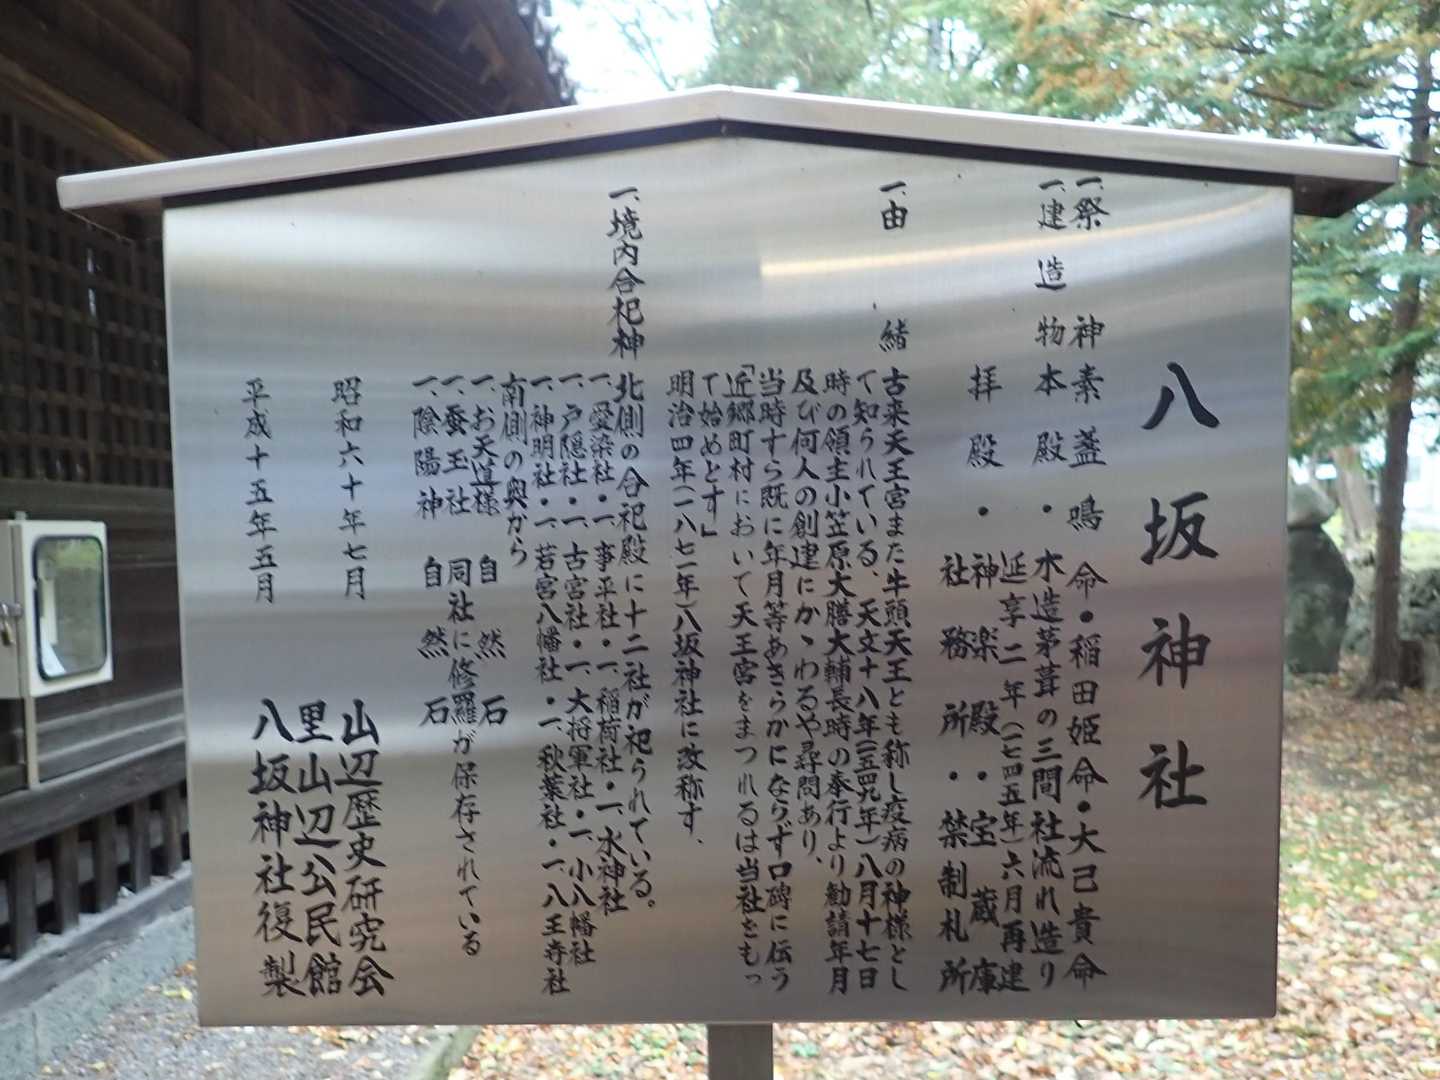 八坂神社
一、祭神 素盞鳴命・稲田姫命・大己貴命
一、建造物 本殿・木造茅葺の三間社流れ造り
延享二年(一七四五年)六月再建
拝殿・神楽殿・宝蔵庫
社務所・禁制札所
一、由緒 古来天王宮また牛頭天王とも称し疫病の神様とし
て知られている、天文十八年(一五四九年)八月十七日
時の領主小笠原大膳大輔長時の奉行より勧請年月
及び何人の創建にかゝわるや尋問あり、
当時すら既に年月等あきらかにならず口碑に伝う
「近郷町村において天王宮をまつれるは当社をもっ
て始めとす」
明治四年(一八七一年)八坂神社に改称す.
一、境内合祀神 北側の合祀殿に十二社が祀られている。
一、愛染社・一、事平社・一、稲荷社・一、水神社
一、戸隠社・一、古宮社・一、大将軍社・一、小八幡社
一、神明社・一、若宮八幡社・一、秋葉社・一、八王寺社
南側の奥から
一、お天道様 自然石
一、蚕玉社 同社に修羅が保存されている
一、陰陽神 自然石
昭和六十年七月 山辺歴史研究会
里山辺公民館
平成十五年五月 八坂神社復製